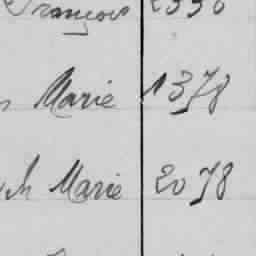 François
Marie 1378
Marie 2078